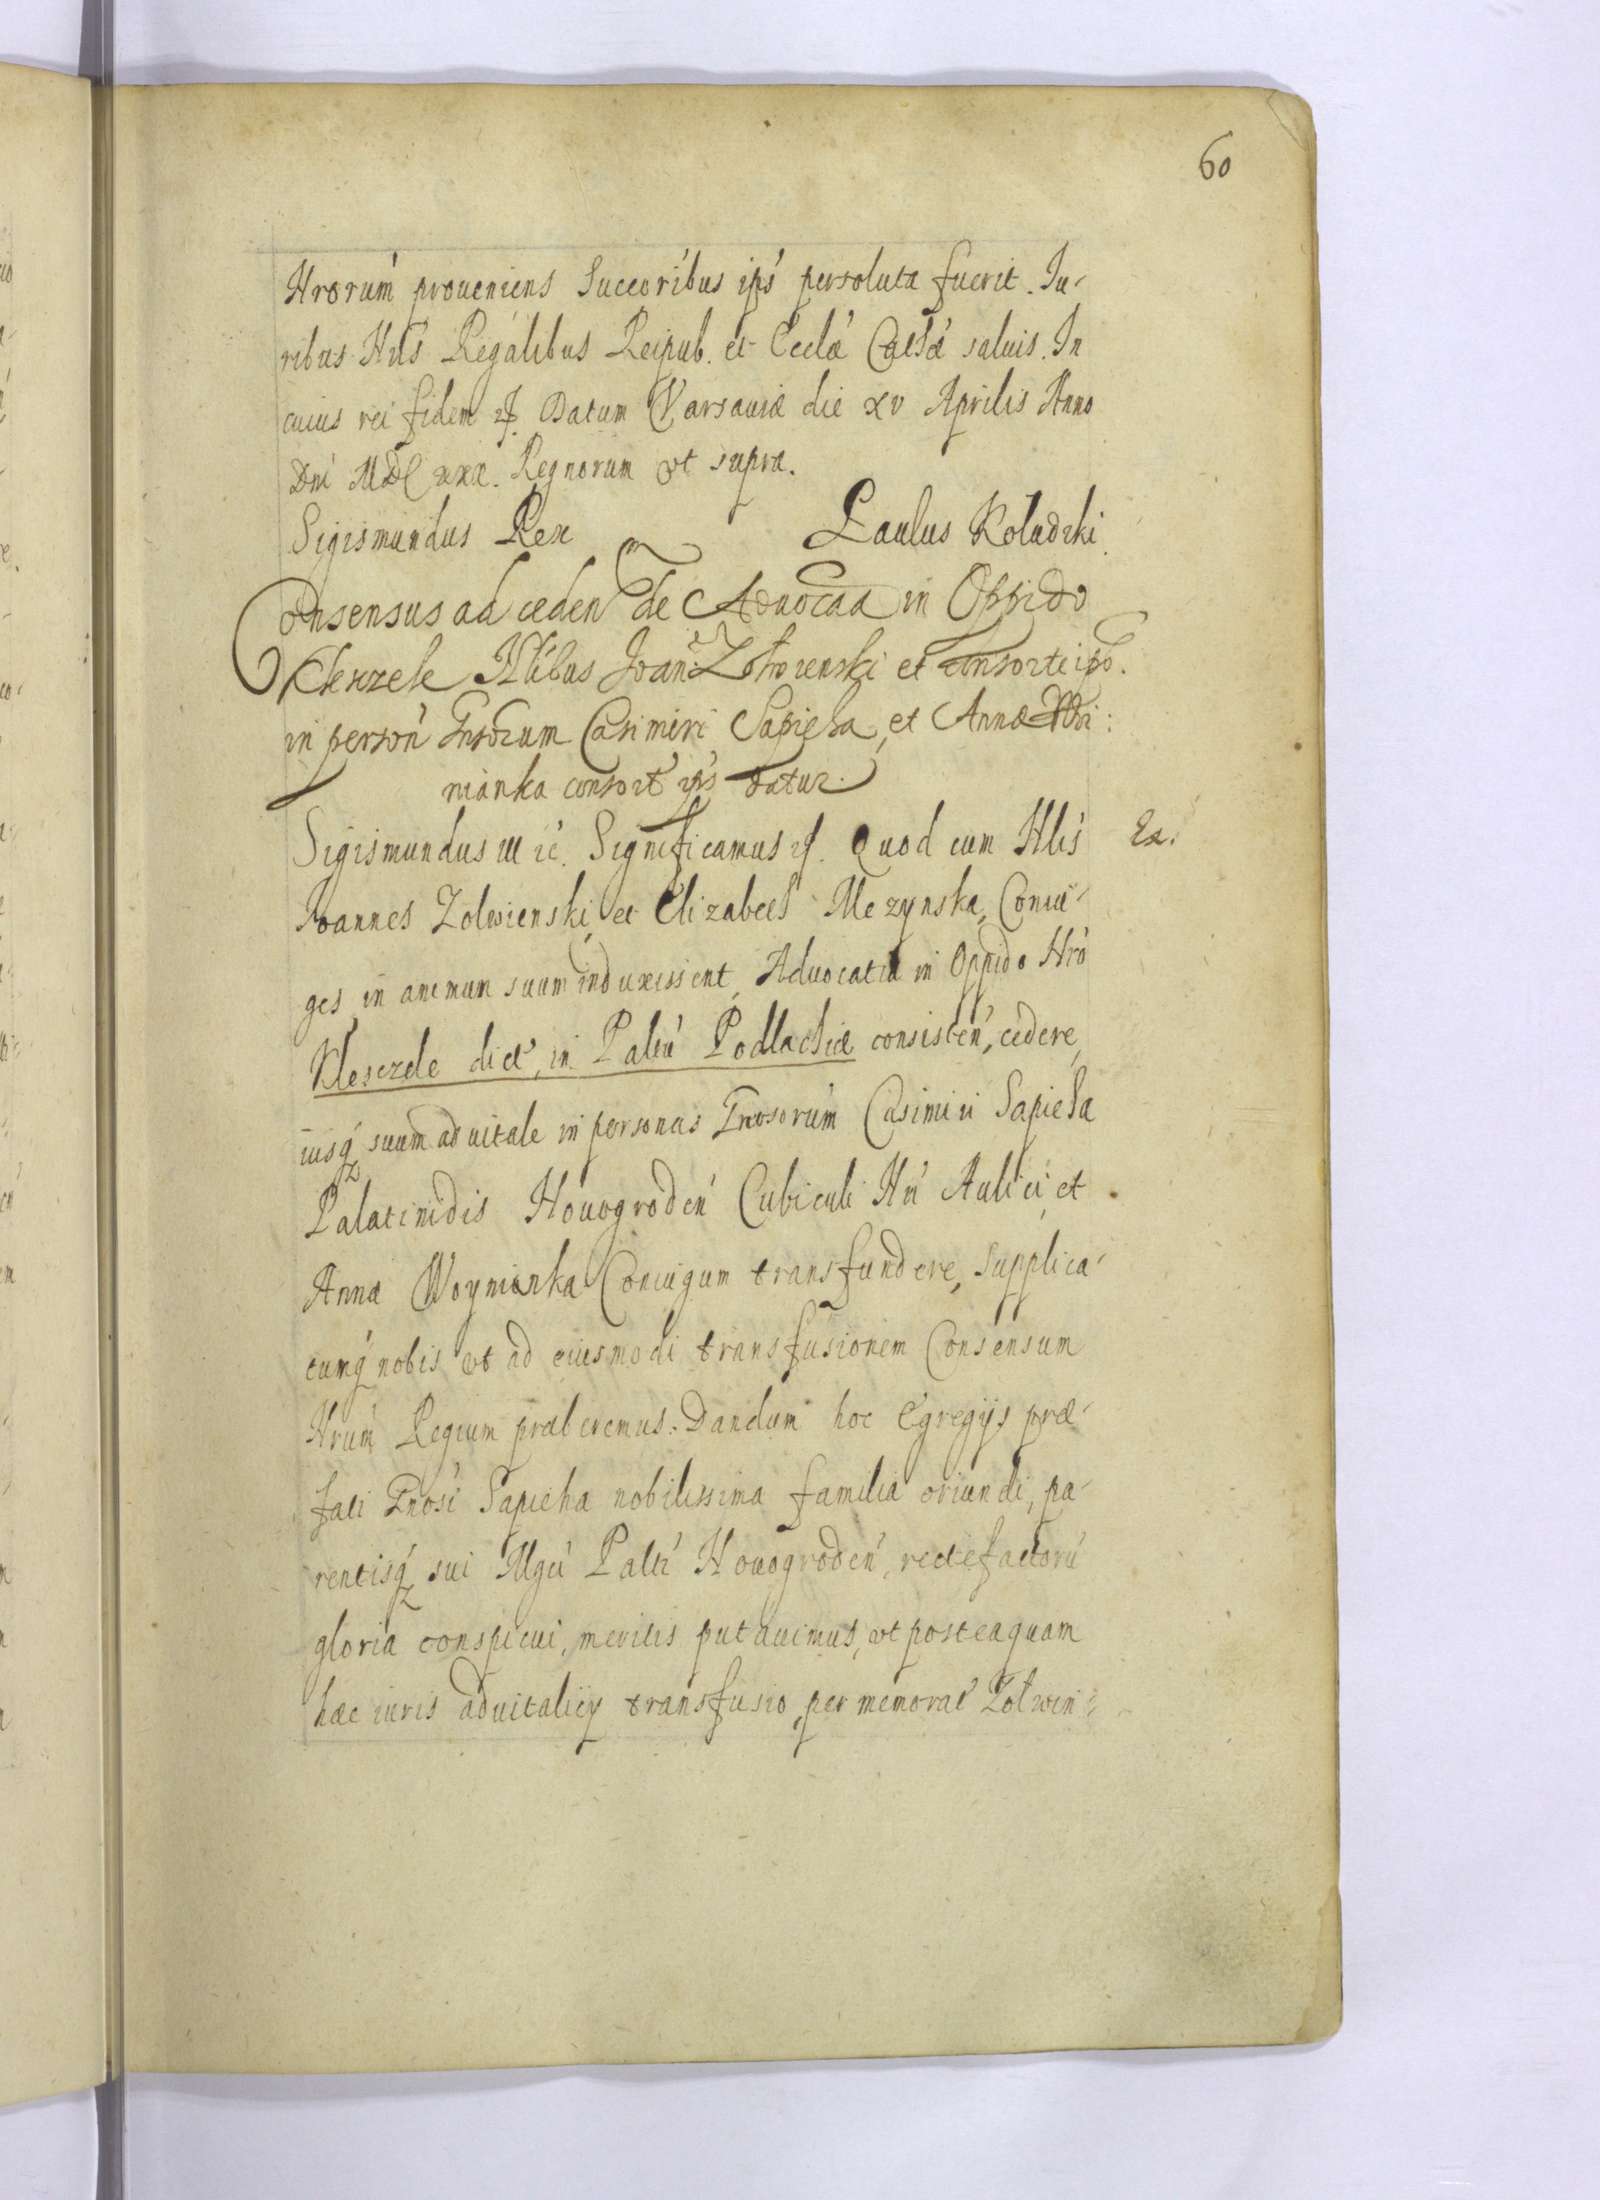 60
Nrorum proueniens Succoribus ips persoluta fuerit. Iu-
ribus Nris Regalibus Reipub. et Eccla Catha saluis. In
cuius rei fidem etc. Datum Varsauiæ die xv Aprilis Anno
Dni MDC xxx. Regnorum vt supra.
Sigismundus Rex Paulus Koludzki.
Consensus ad ceden de Aduocaa in Oppido
Kleszele Nlibus Joan: Zolwienski et consorte ips.
in person Gnsorum Casimiri Sapieha, et Annæ Woi:
nianka consort ips datur.
Sigismundus III etc. Significamus etc. Quod cum Nlis Ex.
Ioannes Zolwienski, et Elizabeth Mezynska, Coniu-
ges in animum suum induxissent, Aduocatia in Oppido Nro
Klesczele dict, in Paltu Podlachiæ consisten, cedere,
iusq suum aduitale in personas Gnosorum Casimiri Sapieha
Palatinidis Nouogroden Cubiculi Nri Aulici, et
Anna Woynianka Coniugum transfundere, supplica-
tumq nobis vt ad eiusmodi transfusionem Consensum
Nrum Regium præberemus. Dandum hoc Egregijs præ-
fati Gnosi Sapieha nobilissima familia oriundi, pa-
rentisq sui Mgci Palti Nouogroden, rectefactoru
gloria conspicui, meritis putauimus, vt posteaquam
hæc iuris aduitalicÿ transfusio per memorat Zolwin: